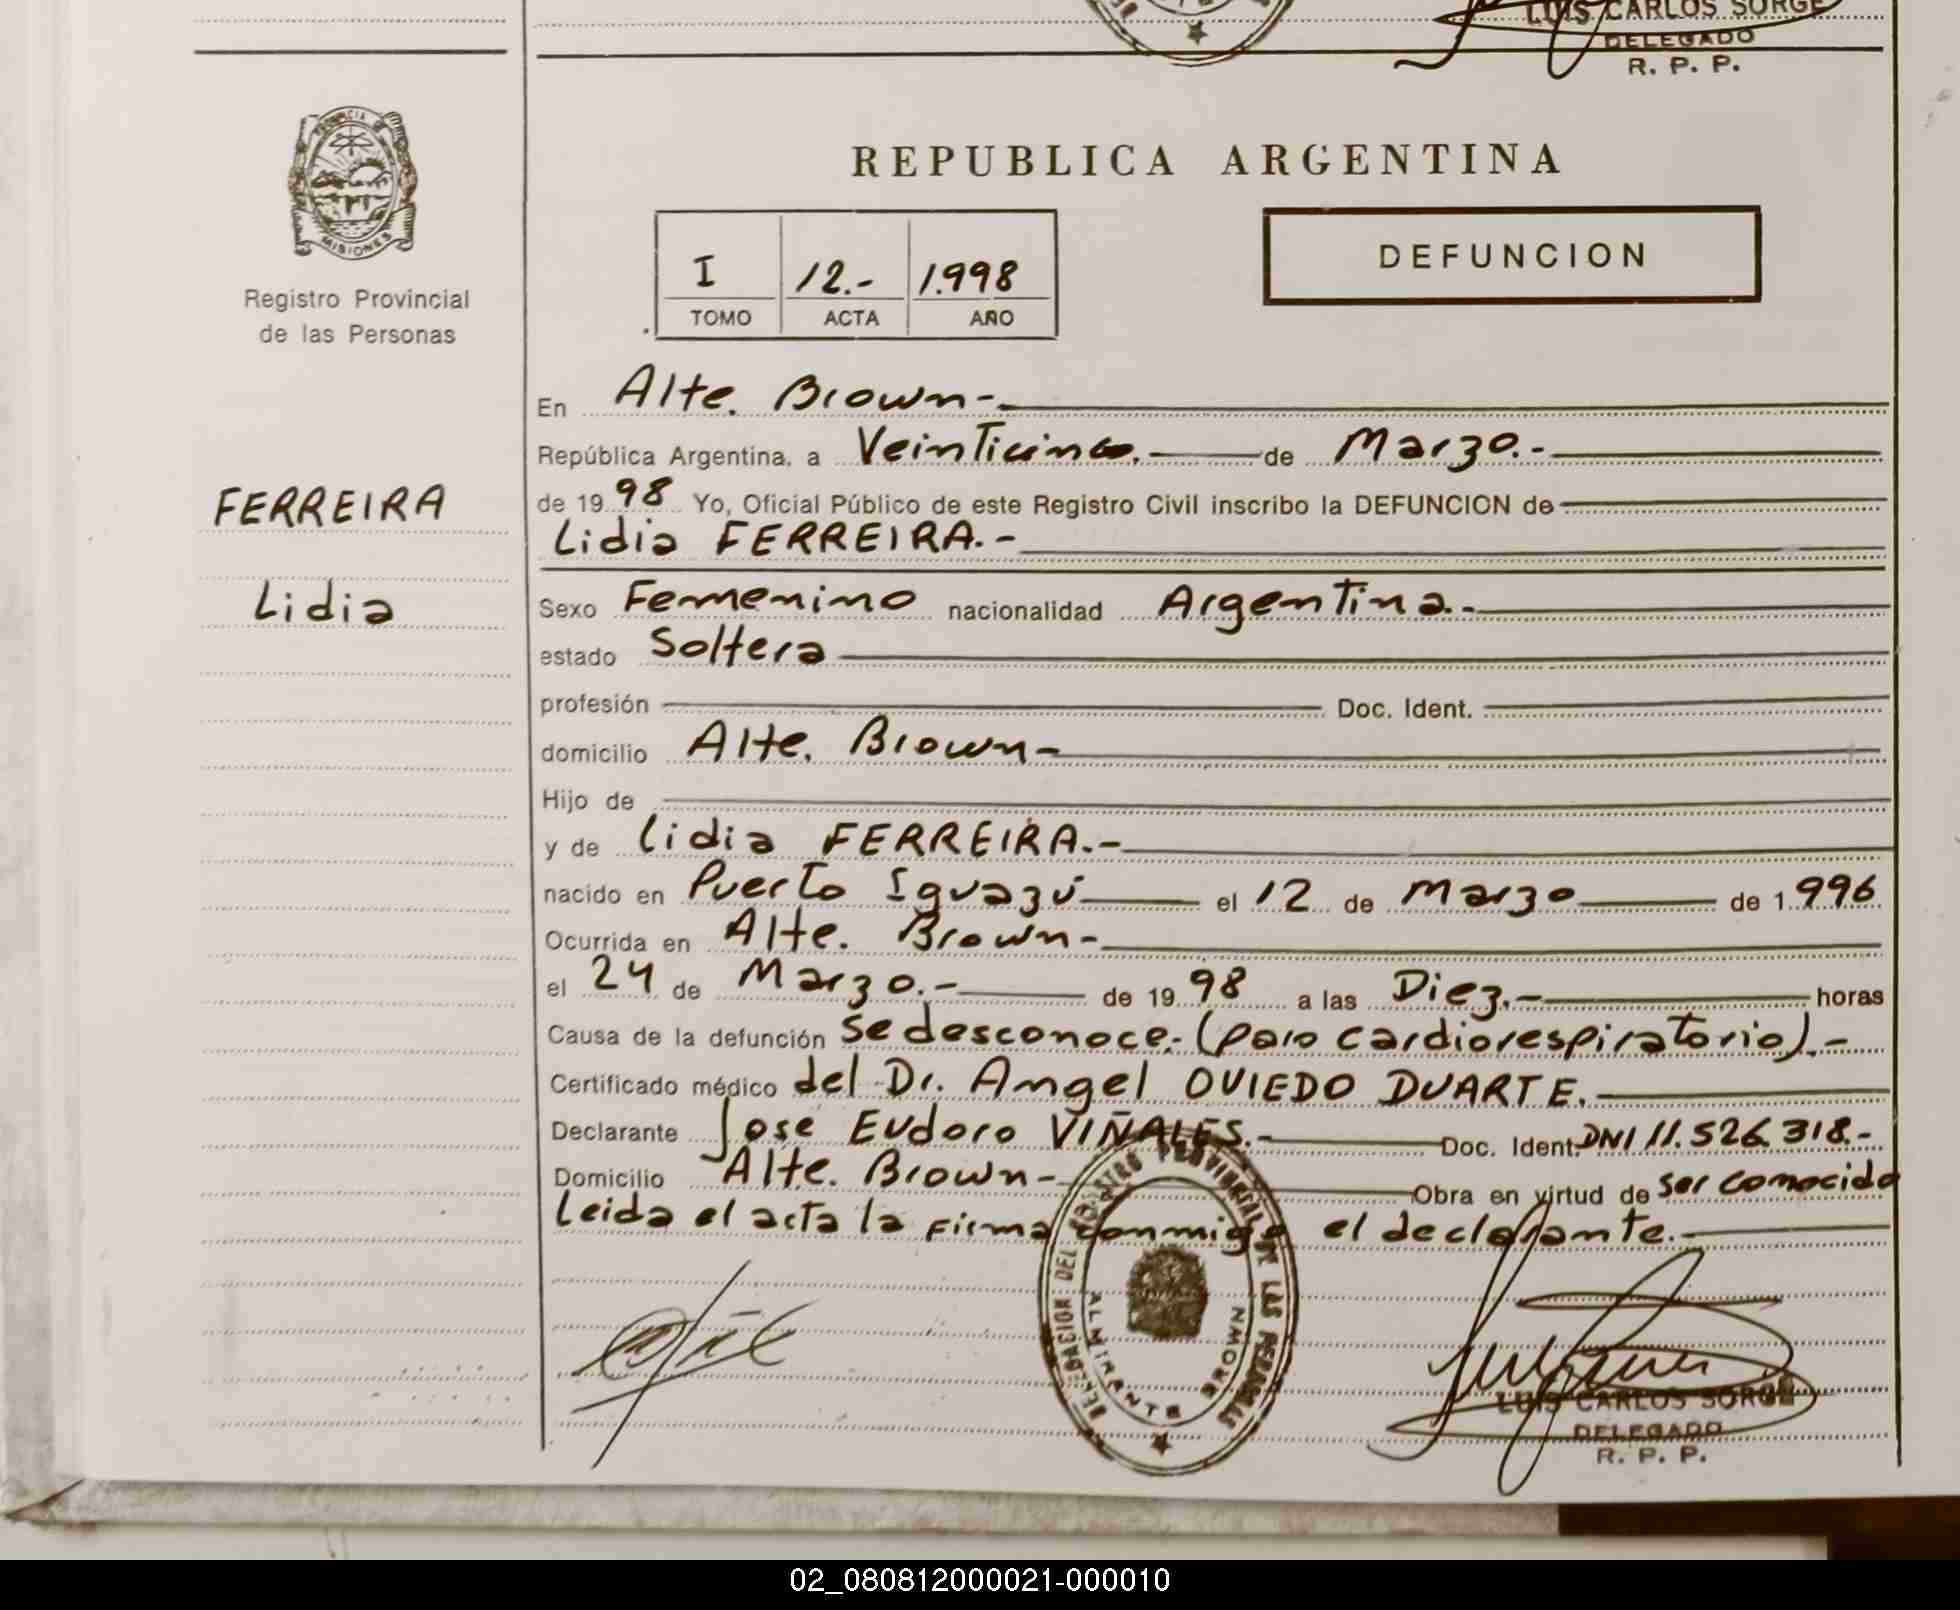 LUIS CARLOS SORGE
DELEGADO
R. P. P.
PROVINCIA DE
MISIONES
Registro Provincial
de las Personas
FERREIRA
Lidia
REPUBLICA ARGENTINA
I 12.- 1.998
TOMO ACTA AÑO
DEFUNCION
En Alte. Brown-
República Argentina, a Veinticinco.- de Marzo.-
de 1998 Yo, Oficial Público de este Registro Civil inscribo la DEFUNCION de
Lidia FERREIRA.-
Sexo Femenino nacionalidad Argentina.-
estado Soltera
profesión Doc. Ident.
domicilio Alte. Brown-
Hijo de
y de Lidia FERREIRA.-
nacido en Puerto Iguazú el 12 de Marzo de 1.996
Ocurrida en Alte. Brown-
el 24 de Marzo.- de 1998 a las Diez.- horas
Causa de la defunción se desconoce.- (paro cardiorespiratorio).-
Certificado médico del Dr. Angel OVIEDO DUARTE.
Declarante Jose Eudoro VIÑALES.- Doc. Ident. DNI 11.526.318.-
Domicilio Alte. Brown- Obra en virtud de ser conocido
Leida el acta la firma conmigo el declarante.-
DELEGACION DEL REGISTRO PROVINCIAL DE LAS PERSONAS
ALMIRANTE BROWN
LUIS CARLOS SORGE
DELEGADO
R. P. P.
02_080812000021-000010